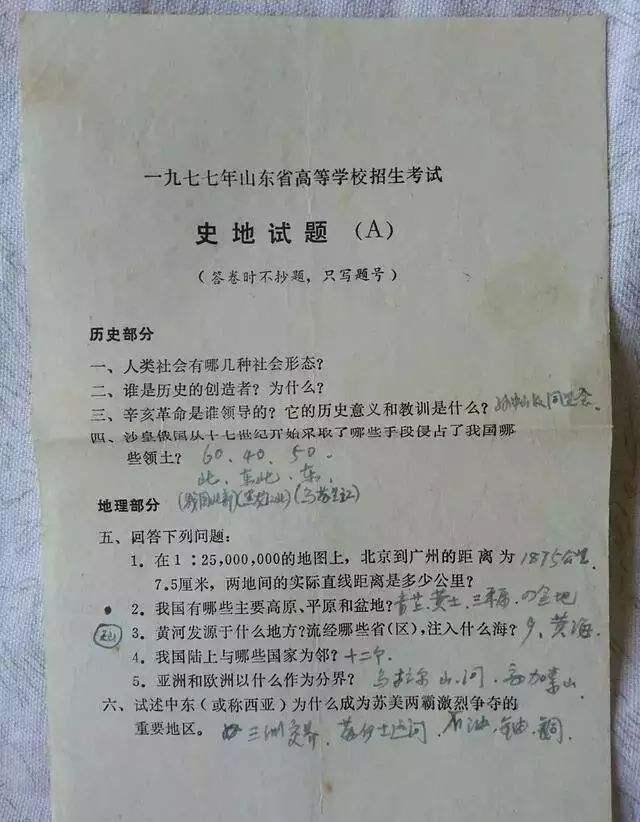 一九七七年山东省高等学校招生考试
史地试题 (A)
(答卷时不抄题，只写题号)
历史部分
一、人类社会有哪几种社会形态?
二、谁是历史的创造者? 为什么?
三、辛亥革命是谁领导的? 它的历史意义和教训是什么? 同盟会.
四、沙皇俄国从十七世纪开始采取了哪些手段侵占了我国哪
些领土? 60、40、50.
北、东北、东
地理部分
五、回答下列问题:
1. 在1:25,000,000的地图上，北京到广州的距离为 1875公里.
7.5厘米，两地间的实际直线距离是多少公里?
2. 我国有哪些主要高原、平原和盆地? 黄土、三
3. 黄河发源于什么地方?流经哪些省(区)，注入什么海? 9、黄海.
4. 我国陆上与哪些国家为邻? 十二个.
5. 亚洲和欧洲以什么作为分界? 乌拉尔山.河.高加索山
六、试述中东(或称西亚)为什么成为苏美两霸激烈争夺的
重要地区。 三洲交界. 苏伊士运河. 石油.铀.铜